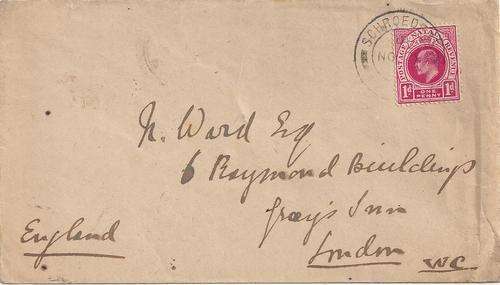 SCHROED
NO
POSTAGE NATAL REVENUE
1d ONE PENNY 1d
N. Ward Esq
6 Raymond Buildings
Gray's Inn
London
WC
England